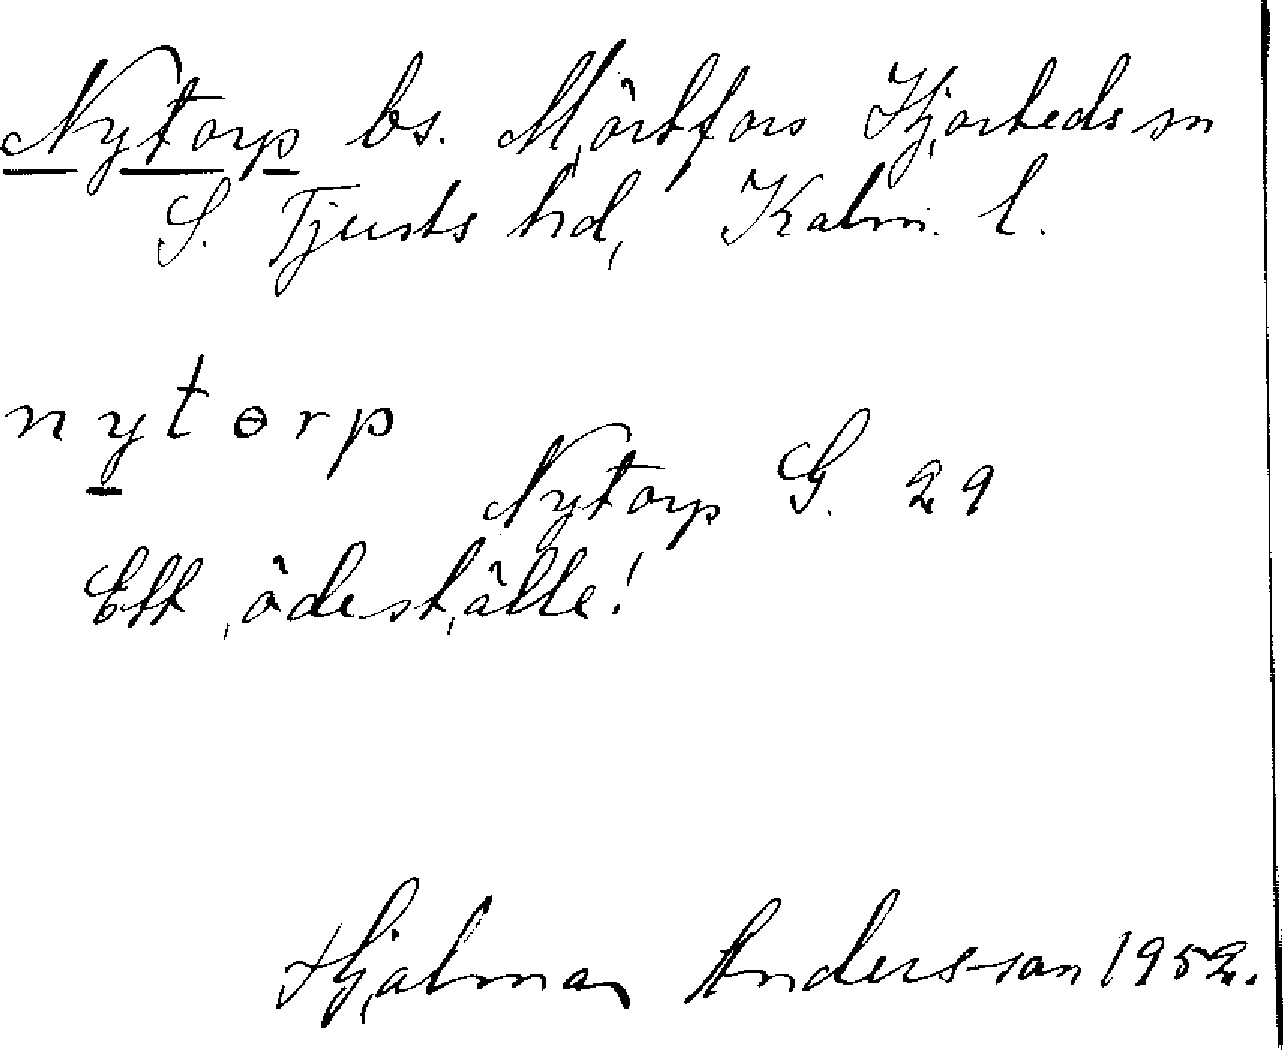 Nytorp bs. Mörtfors Hjorteds sn
S. Tjusts hd, Kalm. l.
nytɵrp
Nytorp G. 29
Ett ödeställe!
Hjalmar Andersson 1952.